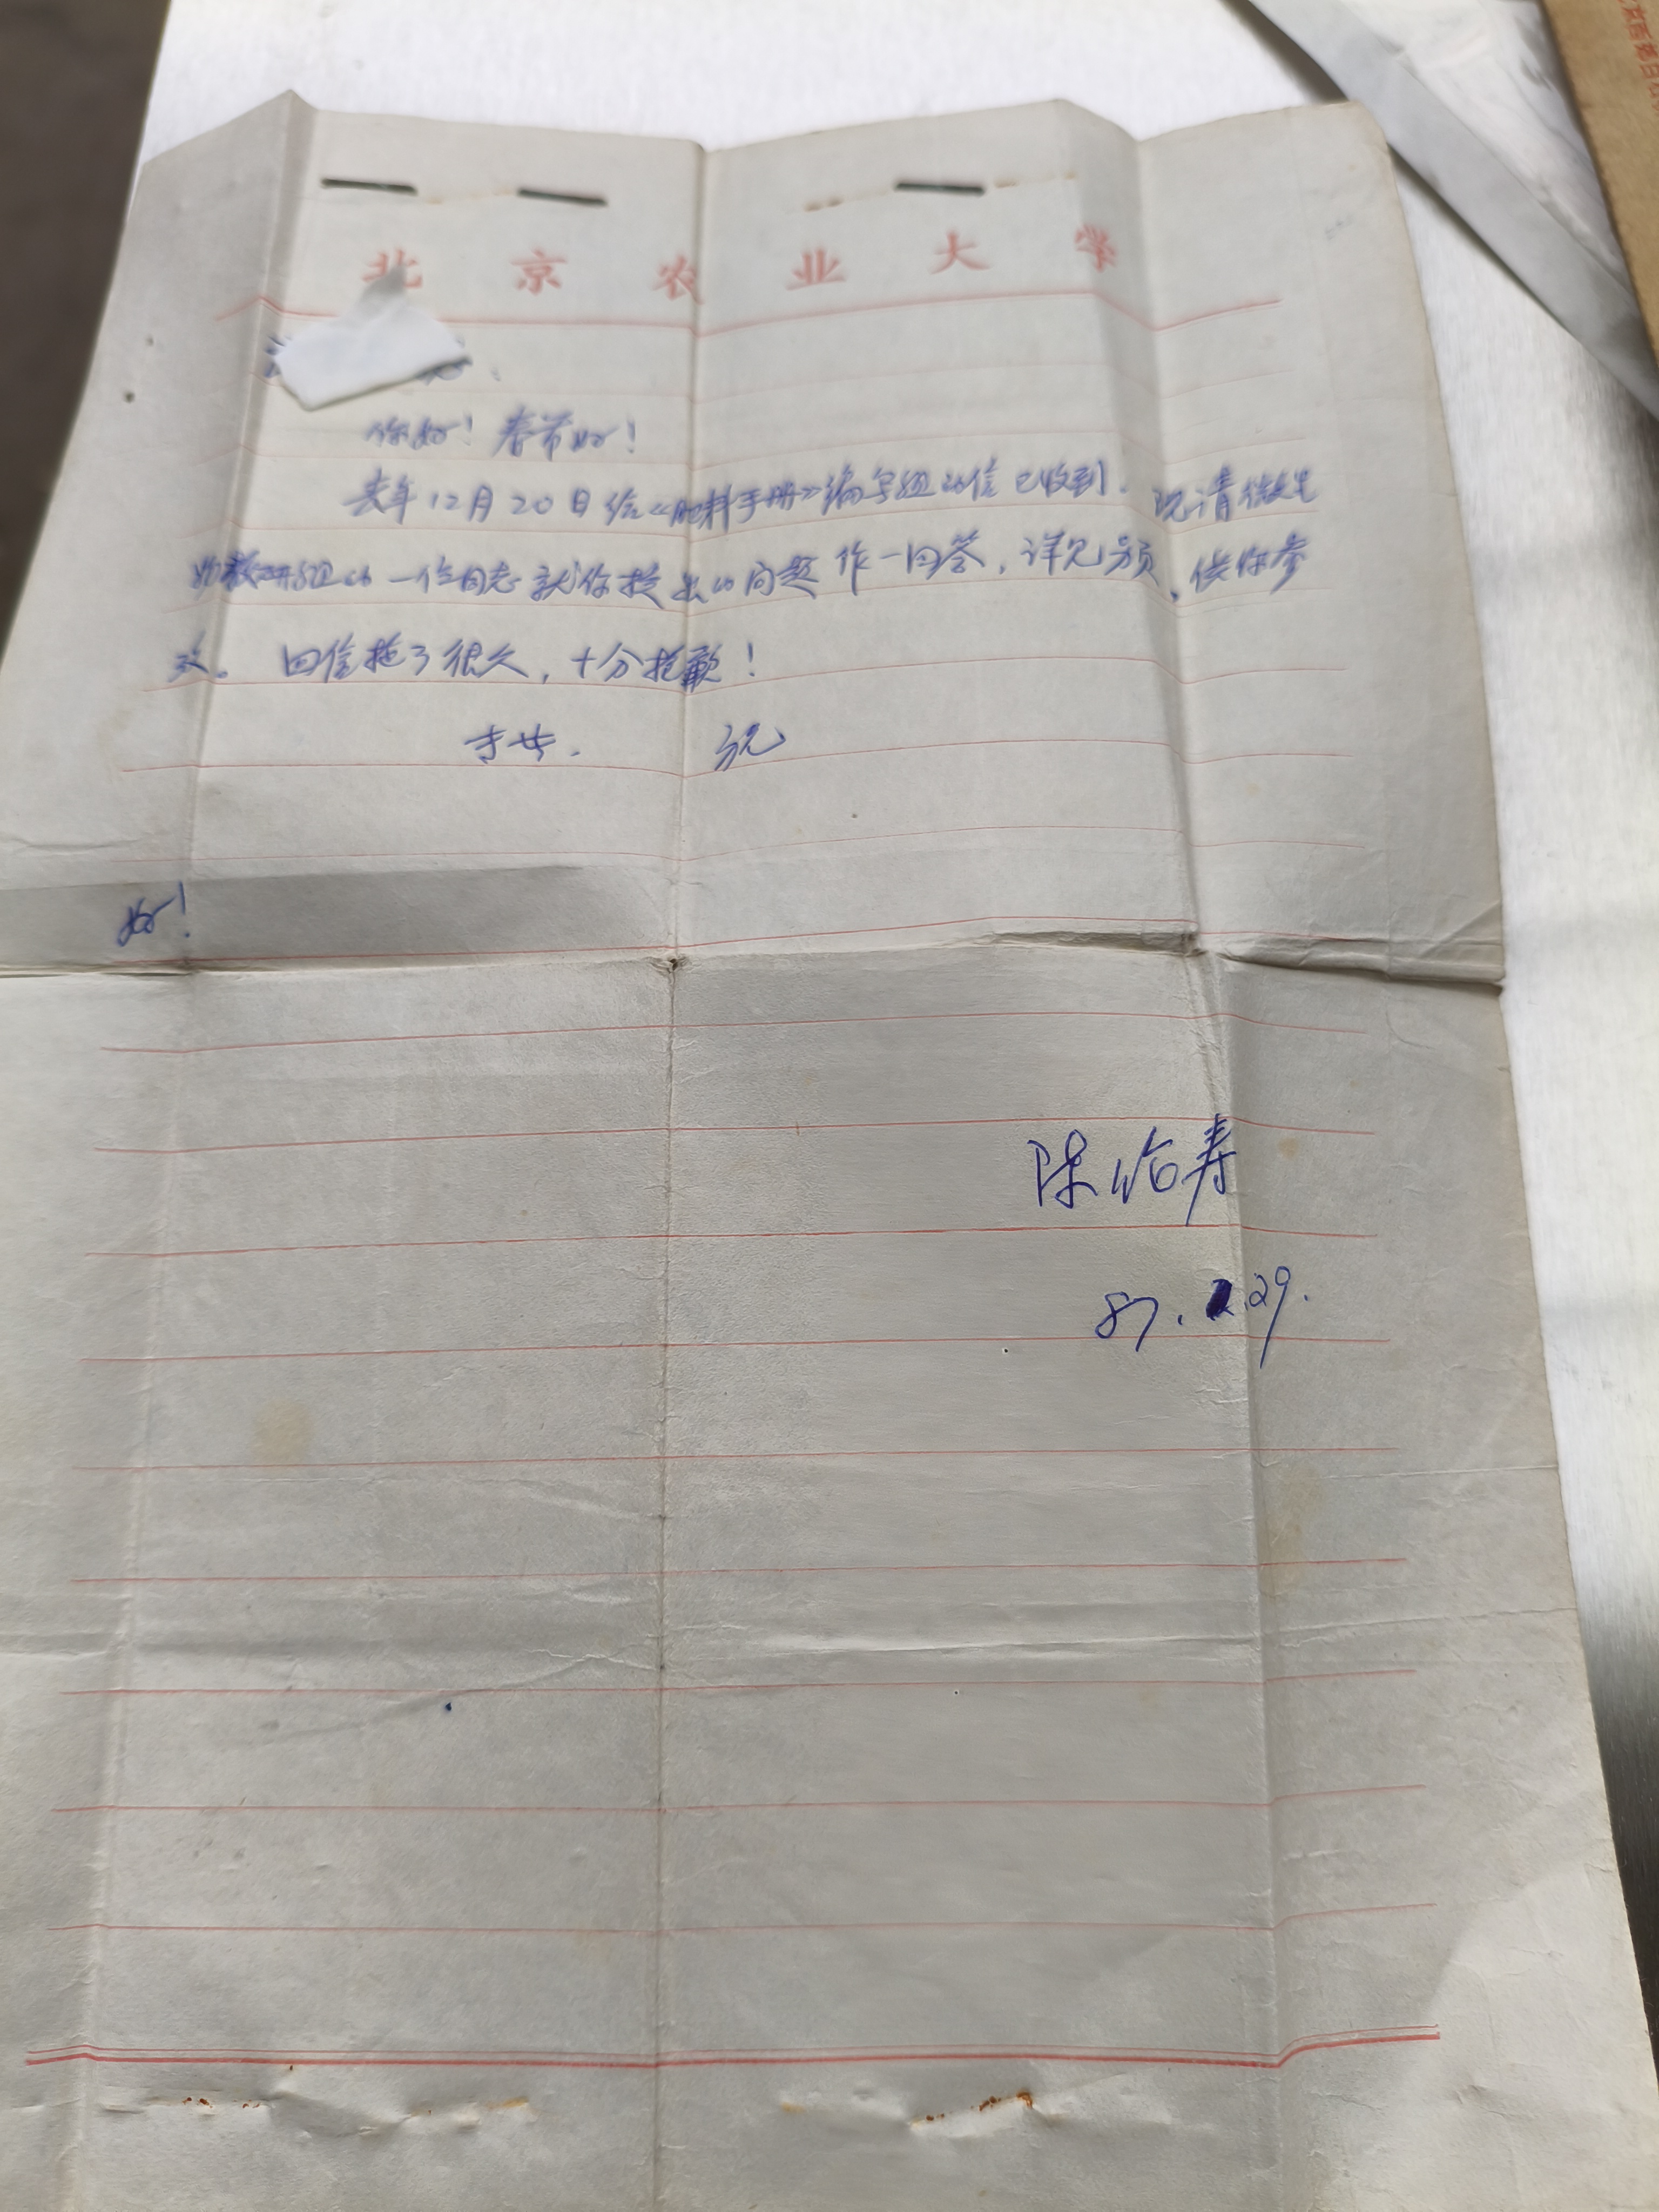 北京农业大学
你好！春节好！
去年12月20日给《肥料手册》编写组的信已收到．现请微生
物教研组的一位同志就你提出的问题作一回答，详见另页，供你参
攷。回信拖了很久，十分抱歉！
专此．祝
好！
陈伦寿
87. 29.